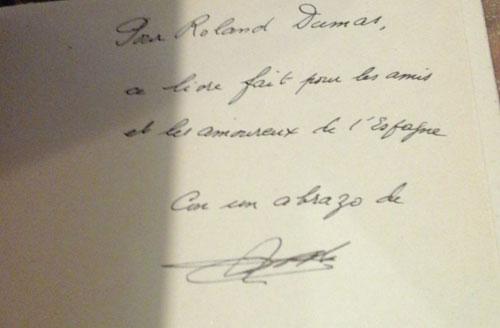 Pour Roland Dumas,
ce livre fait pour les amis
et les amoureux de l'Espagne
Con un abrazo de